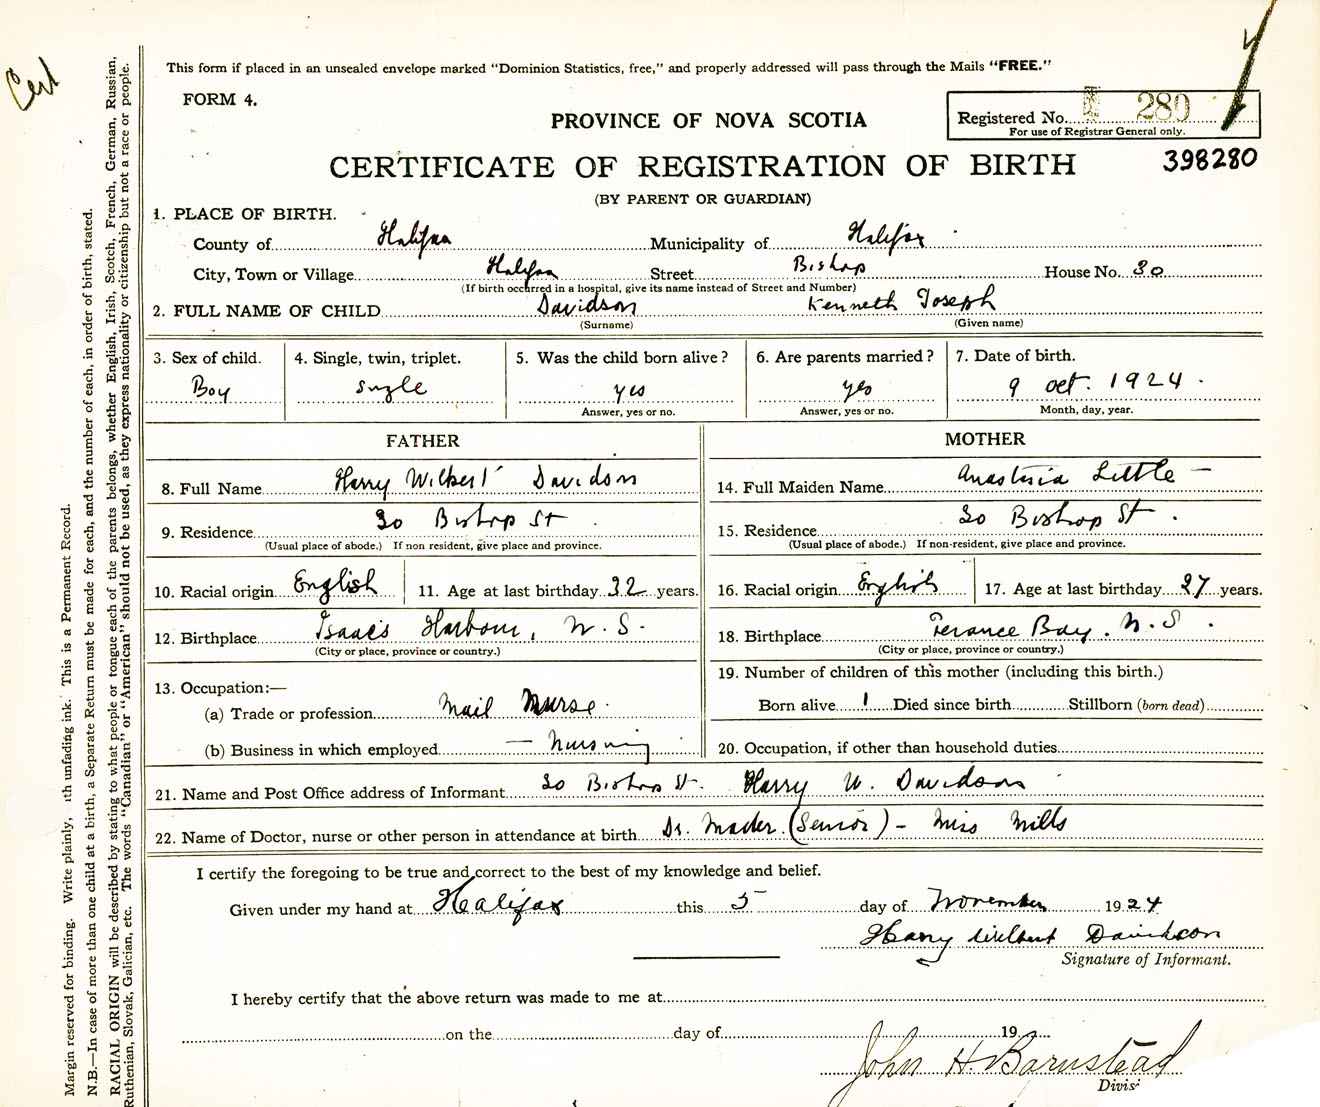 Cert
This form if placed in an unsealed envelope marked "Dominion Statistics, free," and properly addressed will pass through the Mails "FREE."
FORM 4.
PROVINCE OF NOVA SCOTIA
Registered No. 280
For use of Registrar General only.
CERTIFICATE OF REGISTRATION OF BIRTH
398280
(BY PARENT OR GUARDIAN)
1. PLACE OF BIRTH.
County of Halifax Municipality of Halifax
City, Town or Village Halifax Street Bishop House No. 30
(If birth occurred in a hospital, give its name instead of Street and Number)
2. FULL NAME OF CHILD Davidson Kenneth Joseph
(Surname) (Given name)
3. Sex of child. 4. Single, twin, triplet. 5. Was the child born alive? 6. Are parents married? 7. Date of birth.
Boy single yes yes 9 oct. 1924.
Answer, yes or no. Answer, yes or no. Month, day, year.
FATHER MOTHER
8. Full Name Harry Wilbert Davidson
9. Residence 30 Bishop St
(Usual place of abode.) If non resident, give place and province.
10. Racial origin English 11. Age at last birthday 32 years.
12. Birthplace Isaac's Harbour, N.S.
(City or place, province or country.)
13. Occupation:—
(a) Trade or profession Mail Nurse.
(b) Business in which employed — nursing
14. Full Maiden Name Anastasia Little —
15. Residence 30 Bishop St.
(Usual place of abode.) If non-resident, give place and province.
16. Racial origin English 17. Age at last birthday 27 years.
18. Birthplace Terance Bay. N.S.
(City or place, province or country.)
19. Number of children of this mother (including this birth.)
Born alive 1 Died since birth Stillborn (born dead)
20. Occupation, if other than household duties
21. Name and Post Office address of Informant 30 Bishop St. Harry W. Davidson
22. Name of Doctor, nurse or other person in attendance at birth Dr. Mader. (Senior) - Miss Mills
I certify the foregoing to be true and correct to the best of my knowledge and belief.
Given under my hand at Halifax this 5 day of November 1924
Harry Wilbert Davidson
Signature of Informant.
I hereby certify that the above return was made to me at
on the day of 19
John H. Barnstead
Divis
Margin reserved for binding. Write plainly, ith unfading ink. This is a Permanent Record.
N.B.—In case of more than one child at a birth, a Separate Return must be made for each, and the number of each, in order of birth, stated.
RACIAL ORIGIN will be described by stating to what people or tongue each of the parents belongs, whether English, Irish, Scotch, French, German, Russian,
Ruthenian, Slovak, Galician, etc. The words "Canadian" or "American" should not be used, as they express nationality or citizenship but not a race or people.